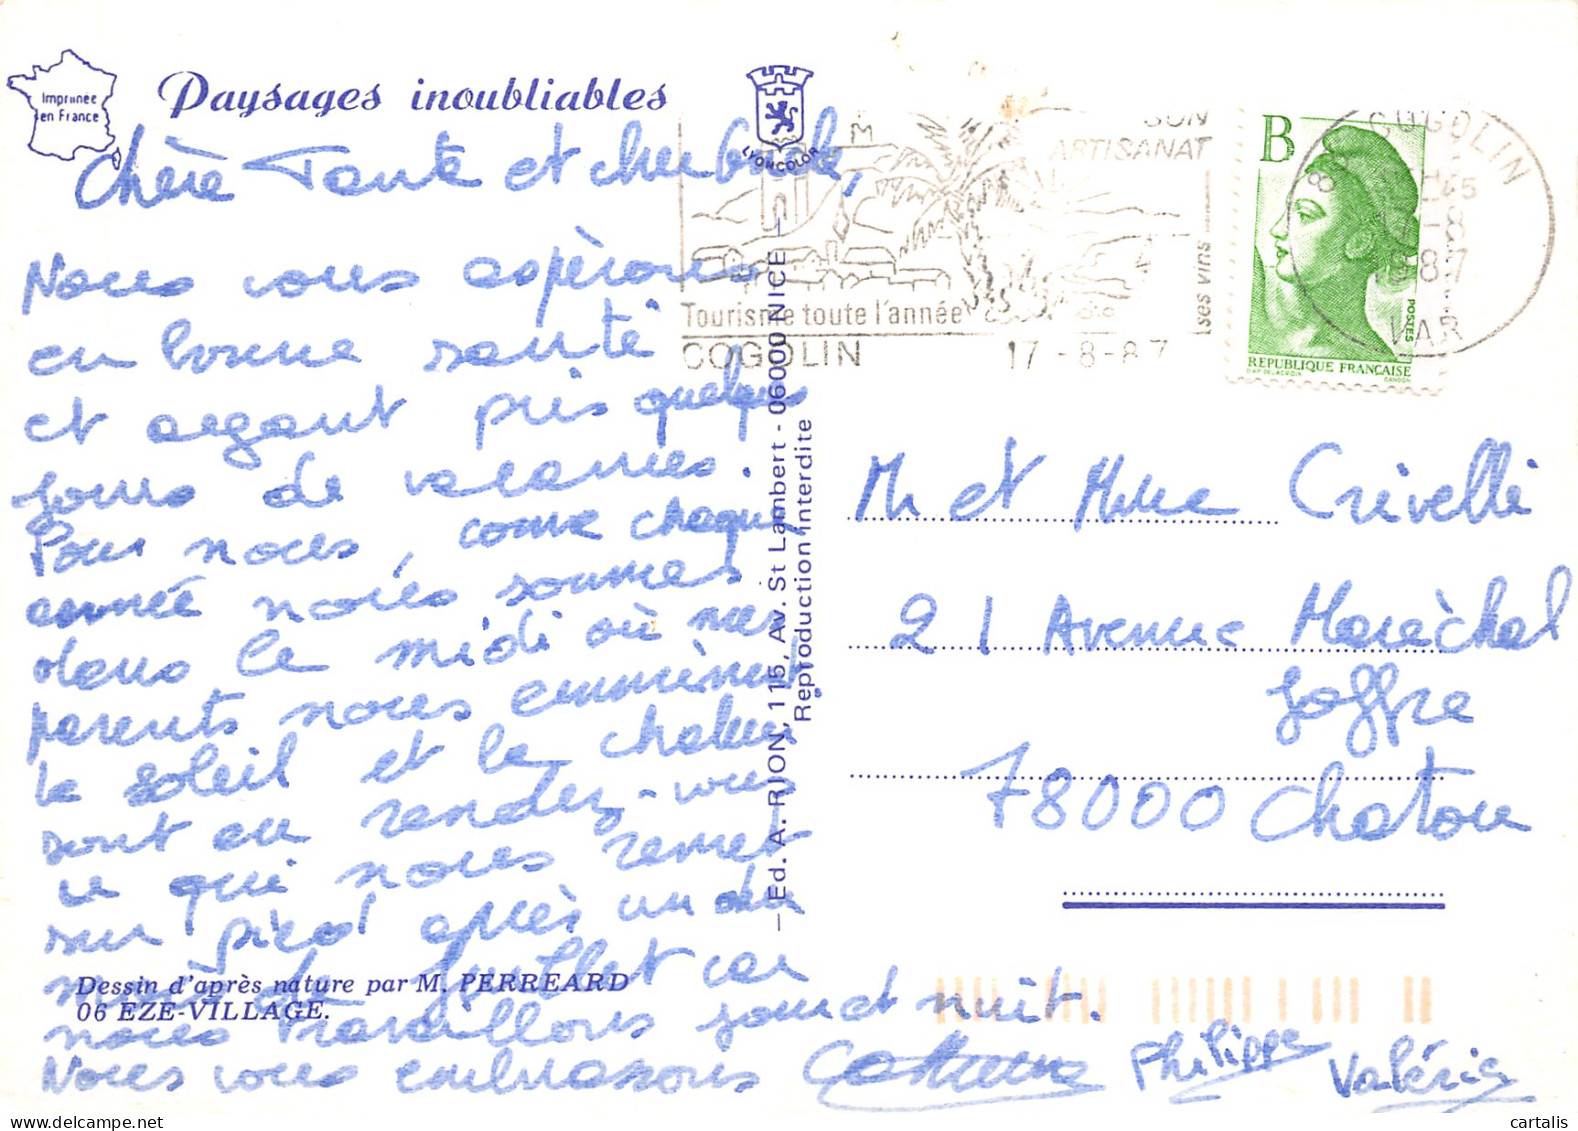 Imprimée
en France
Paysages inoubliables
LYONCOLOR
SON
ARTISANAT
ses vins
Tourisme toute l'année
COGOLIN 17-8-87
B
POSTES
REPUBLIQUE FRANÇAISE
D'AP. DELACROIX GANDON
COGOLIN
17-8
1987
VAR
Chère Tante et cher Oncle,
Nous vous espèrons
en bonne santé
et ayant pris quelques
jours de vacances.
Pour nous, comme chaque
année nous sommes
dans le midi où mes
parents nous emmènent
le soleil et la chaleur
sont au rendez-vous
ce qui nous remet
sur pied après un dur
mois de Juillet car
nous travaillons jour et nuit.
Nous vous embrassons
Catherine Philippe Valérie
Dessin d'après nature par M. PERREARD
06 EZE-VILLAGE.
— Ed. A. RION, 115, Av. St Lambert - 06000 NICE —
Reproduction interdite
Mr et Mme Crivelli
21 Avenue Marèchal
Joffre
78000 Chatou
cartalis
myimage.cz